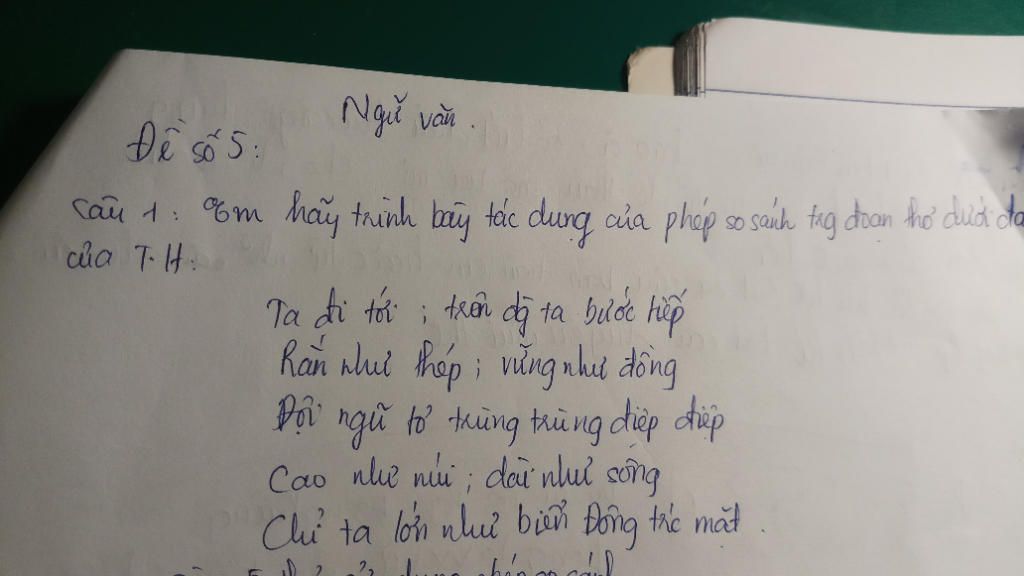 Ngữ văn.
Đề số 5:
Câu 1: Em hãy trình bày tác dụng của phép so sánh trg đoạn thơ dưới
của T.H:
Ta đi tới; trên đg ta bước tiếp
Rắn như thép; vững như đồng
Đội ngũ ta trùng trùng điệp điệp
Cao như núi; dài như sông
Chí ta lớn như biển Đông trc mặt.
phép so sánh